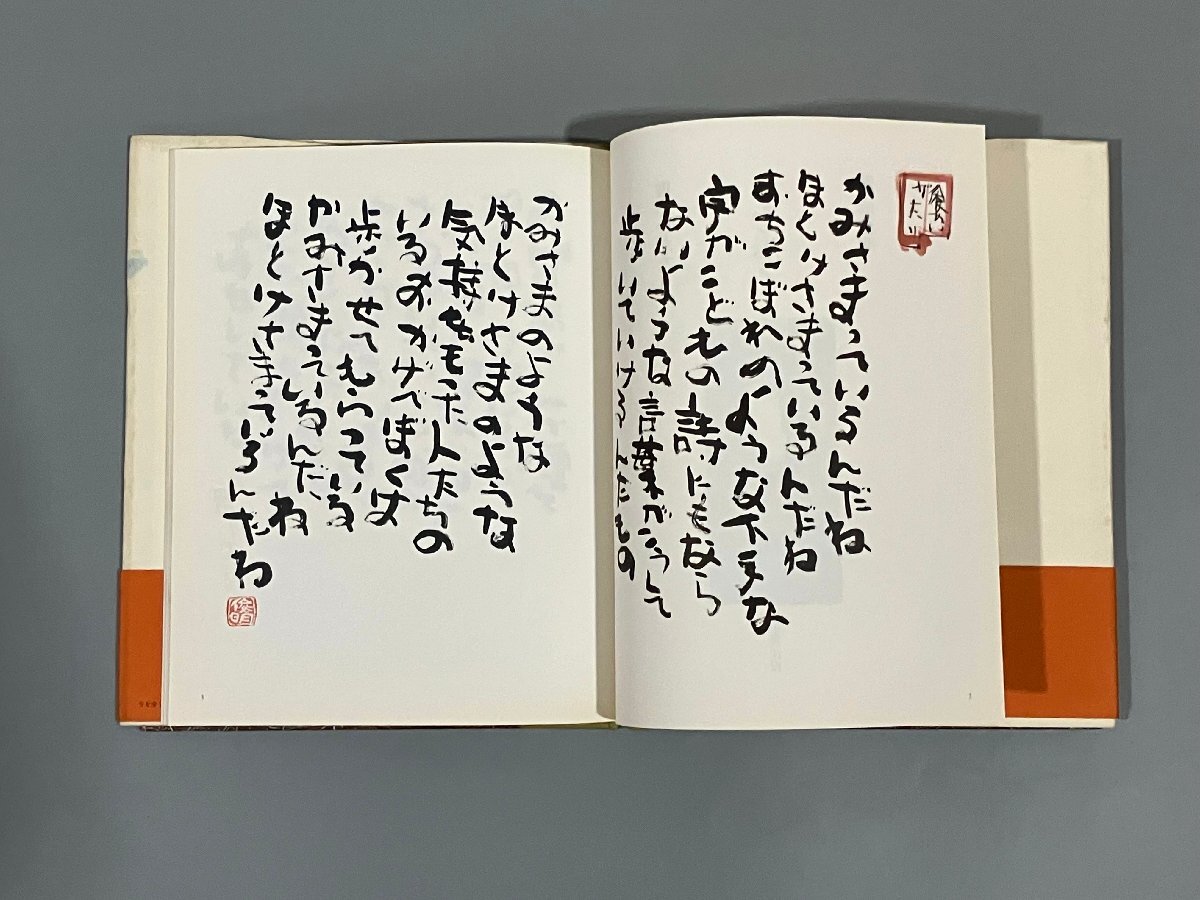 かみさまっているんだね
ほとけさまっているんだね
おちこぼれのような下手な
字がこどもの詩にもなら
ないような言葉がこうして
歩いていけるんだもの
かみさまのような
ほとけさまのような
気持をもった人たちの
いるおかげでぼくは
歩かせてもらっている
かみさまっているんだね
ほとけさまっているんだね